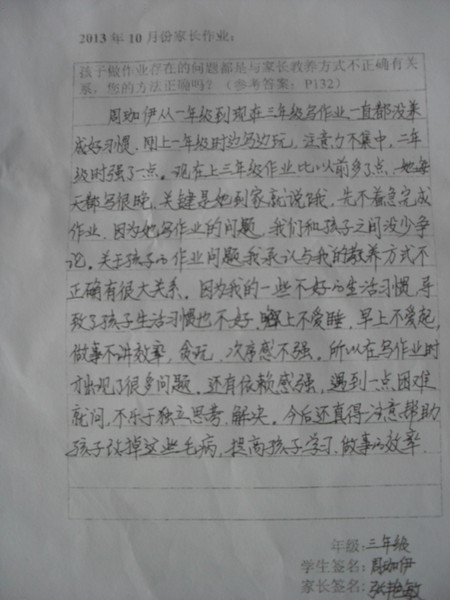 2013年10月份家长作业：
孩子做作业存在的问题都是与家长教养方式不正确有关
系，您的方法正确吗？（参考答案：P132）
周珈伊从一年级到现在三年级写作业一直都没养
成好习惯。刚上一年级时边写边玩，注意力不集中，二年
级时强了一点。现在上三年级作业比以前多了点，她每
天都写很晚，关键是她到家就说饿，先不着急完成
作业，因为她写作业的问题，我们和孩子之间没少争
论。关于孩子的作业问题我承认与我的教养方式不
正确有很大关系。因为我的一些不好的生活习惯，导
致了孩子生活习惯也不好，晚上不爱睡，早上不爱起，
做事不讲效率，贪玩、次序感不强。所以在写作业时
才出现了很多问题。还有依赖感强，遇到一点困难
就问，不乐于独立思考、解决。今后还真得注意帮助
孩子改掉这些毛病，提高孩子学习、做事的效率.
年级：三年级
学生签名：周珈伊
家长签名：张艳敏